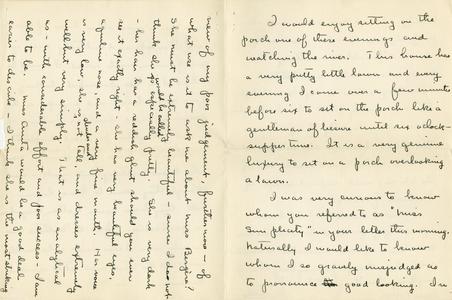 I would enjoy sitting on the
porch one of these evenings and
watching the river. This house has
a very pretty little lawn and every
evening I come over a few minutes
before six to sit on the porch like a
gentleman of leisure until six oclock -
supper time. It is a very genuine
luxury to sit on a porch overlooking
a lawn.
I was very curious to know
whom you referred to as "Miss
Simplicity" in your letter this morning.
Naturally I would like to know
whom I so gravely misjudged as
to pronounce good looking. In
view of my poor judgement, furthermore - of
what use is it to ask me about Miss
She must be extremely beautiful - since I do not
think she would be called especially pretty. She is very dark
- her hair has a reddish glint should you ever
see it exactly right she has very beautiful eyes,
aquiline nose, and a very fine mouth. Her voice
is very low, she is tall, and dresses extremely
well but very simply. That is as analytical
as - with considerable effort and poor success - I am
able to be. Miss would be a good deal
easier to describe. I think she is the most striking